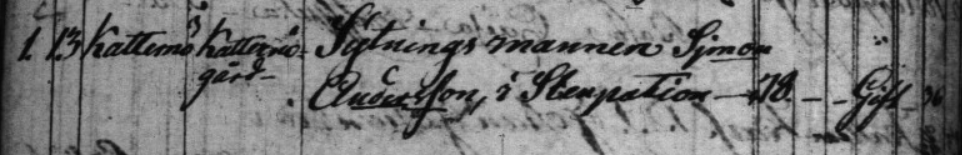 1. 13 Kattemö Kattemö- Sytnings mannen Simon
gård- Andersson, i Stenpation - 78 - - Gift - 36